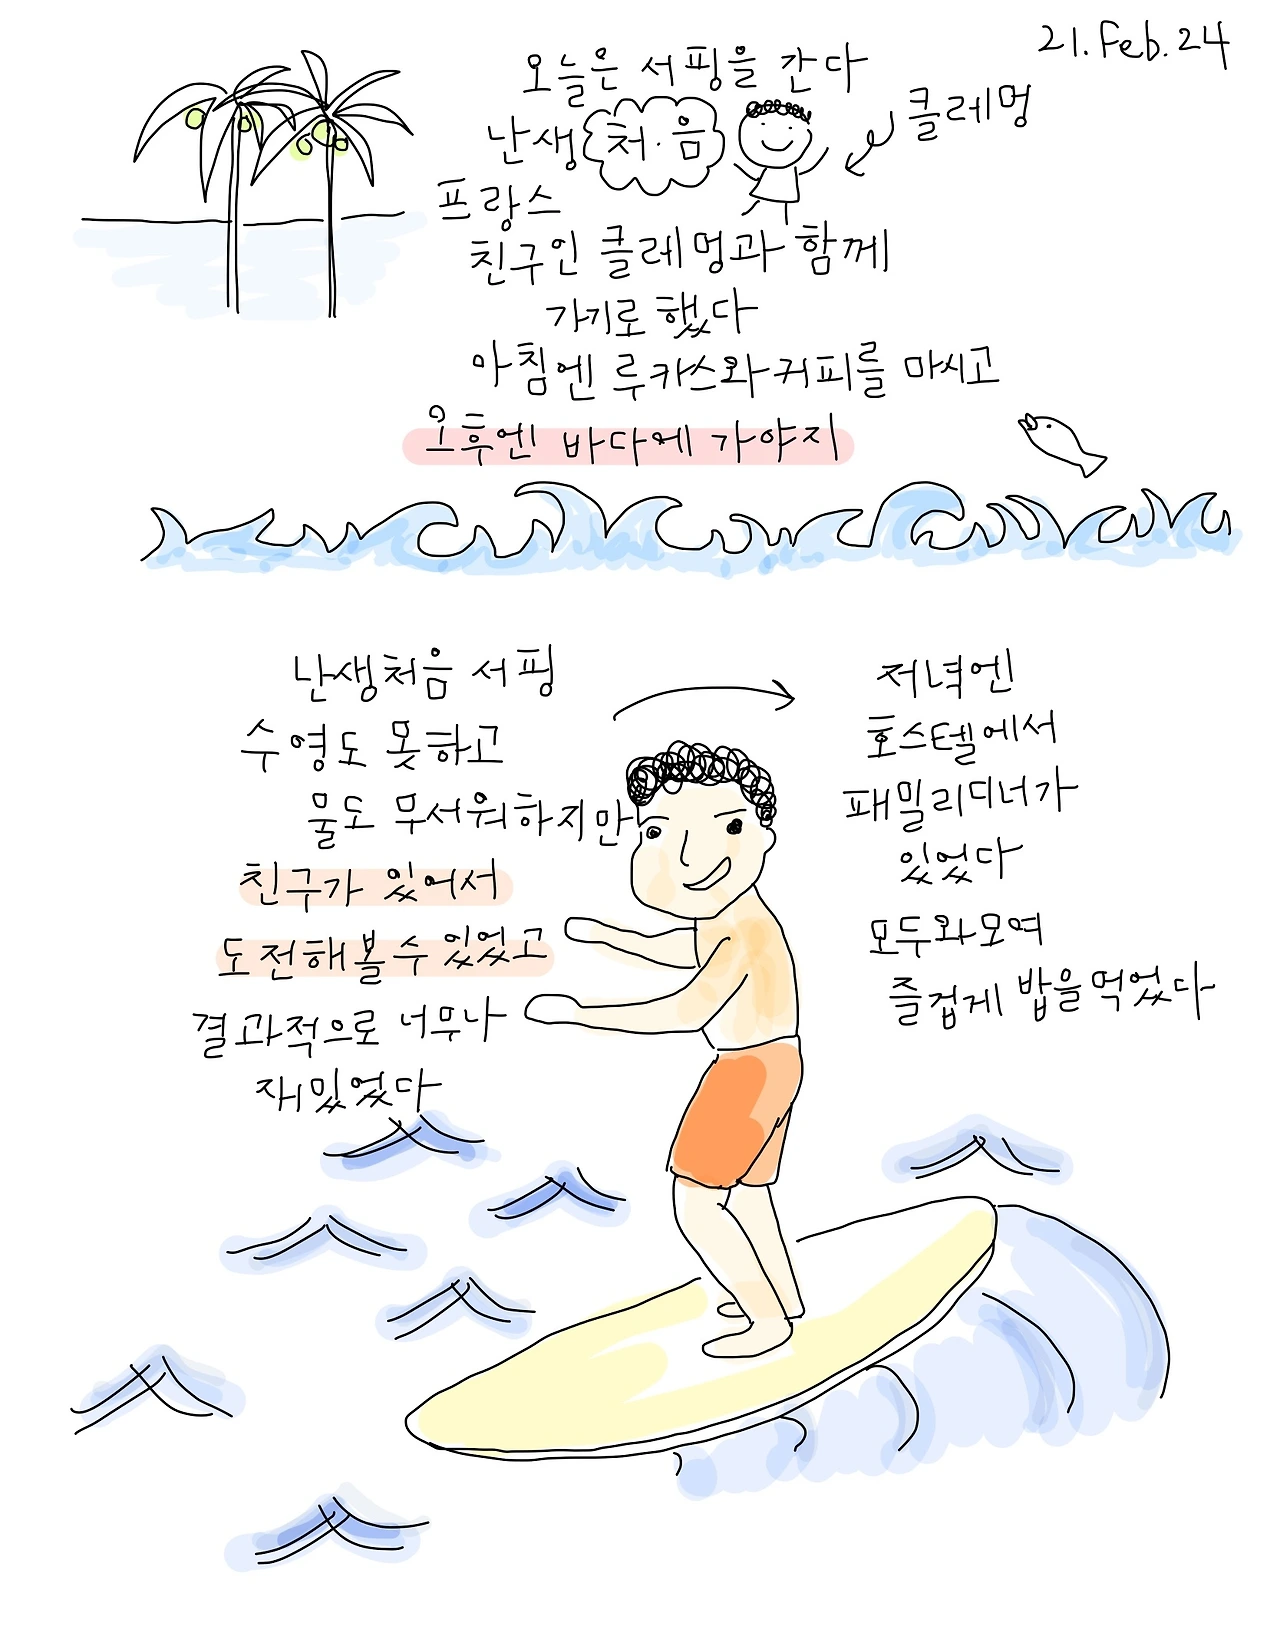 21.Feb.24
오늘은 서핑을 간다
난생 처.음
클레멍
프랑스
친구인 클레멍과 함께
가기로 했다
아침엔 루카스와 커피를 마시고
오후엔 바다에 가야지
난생처음 서핑
수영도 못하고
물도 무서워하지만
친구가 있어서
도전해볼 수 있었고
결과적으로 너무나
재밌었다
저녁엔
호스텔에서
패밀리디너가
있었다
모두와 모여
즐겁게 밥을 먹었다